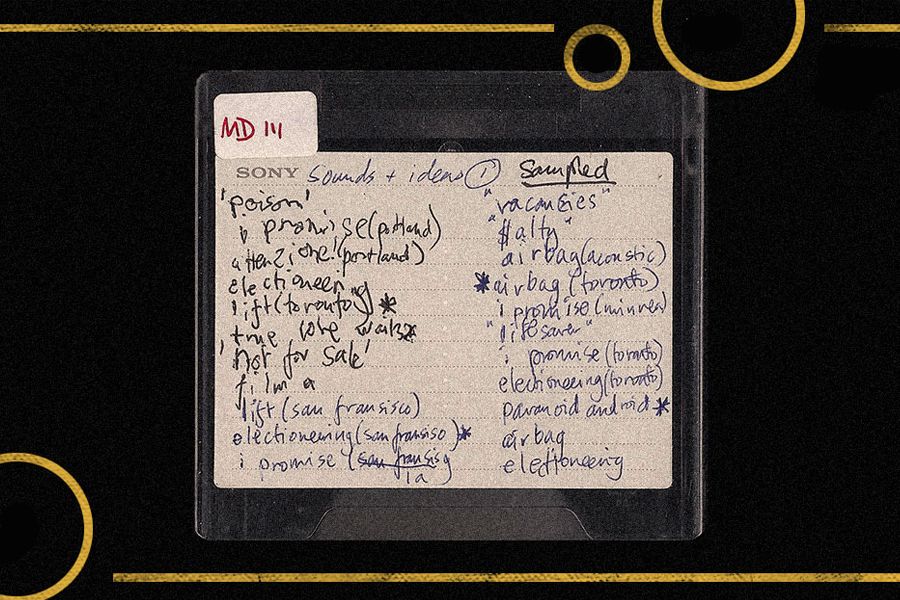 MD 111
SONY sounds + ideas 1 sampled
'poison'
i promise (portland)
attenzione! (portland)
electioneering
lift (toronto) *
true love waits *
'not for sale'
film a
lift (san fransisco)
electioneering (san fransiso) *
i promise (san fransis
la)
"vacancies"
"$alty"
airbag (acoustic)
* airbag (toronto)
i promise (minnea)
"lifesaver"
i promise (toronto)
electioneering (toronto)
paranoid android *
airbag
electioneering